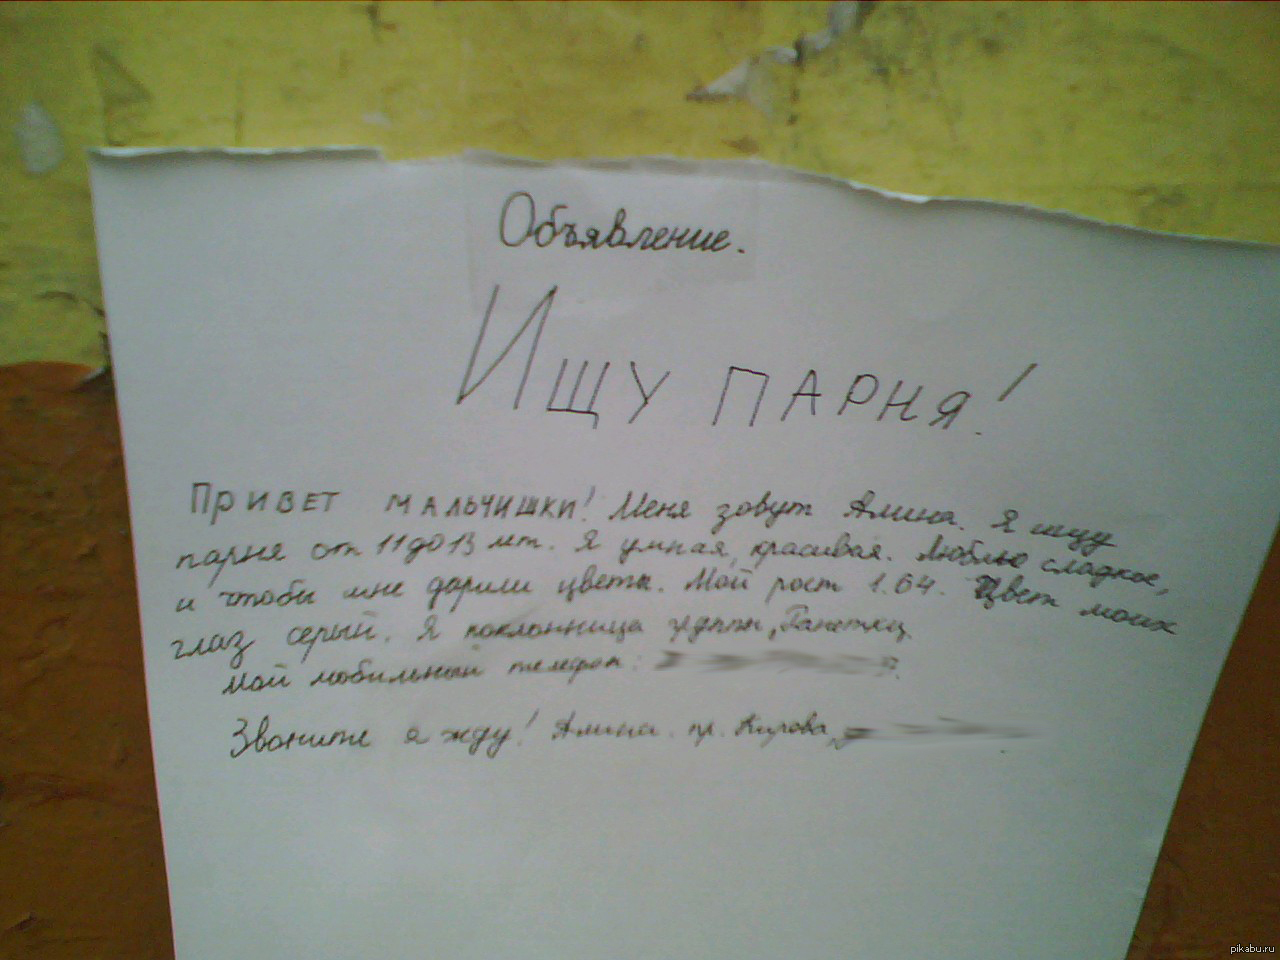 Объявление.
Ищу парня!
Привет мальчишки! Меня зовут Алина. Я ищу
парня от 11 до 13 лет. Я умная, красивая. Люблю сладкое,
и чтобы мне дарили цветы. Мой рост 1.64. Цвет моих
глаз серый. Я поклонница группы, Ранетки.
Мой мобильный телефон:
Звоните я жду! Алина. пр. Кирова,
pikabu.ru